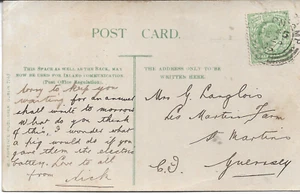 POST CARD.
THIS SPACE AS WELL AS THE BACK, MAY
NOW BE USED FOR INLAND COMMUNICATION
(Post Office Regulation).
THE ADDRESS ONLY TO BE
WRITTEN HERE.
Sorry to keep you
waiting for an answer
shall write to morrow
What do you think
of this, I wonder what
a pig would do if you
gave them the electric
battery. Love to all
from
Mrs G. Langlois
Les Martins Farm
St Martins
C.I.
Guernsey